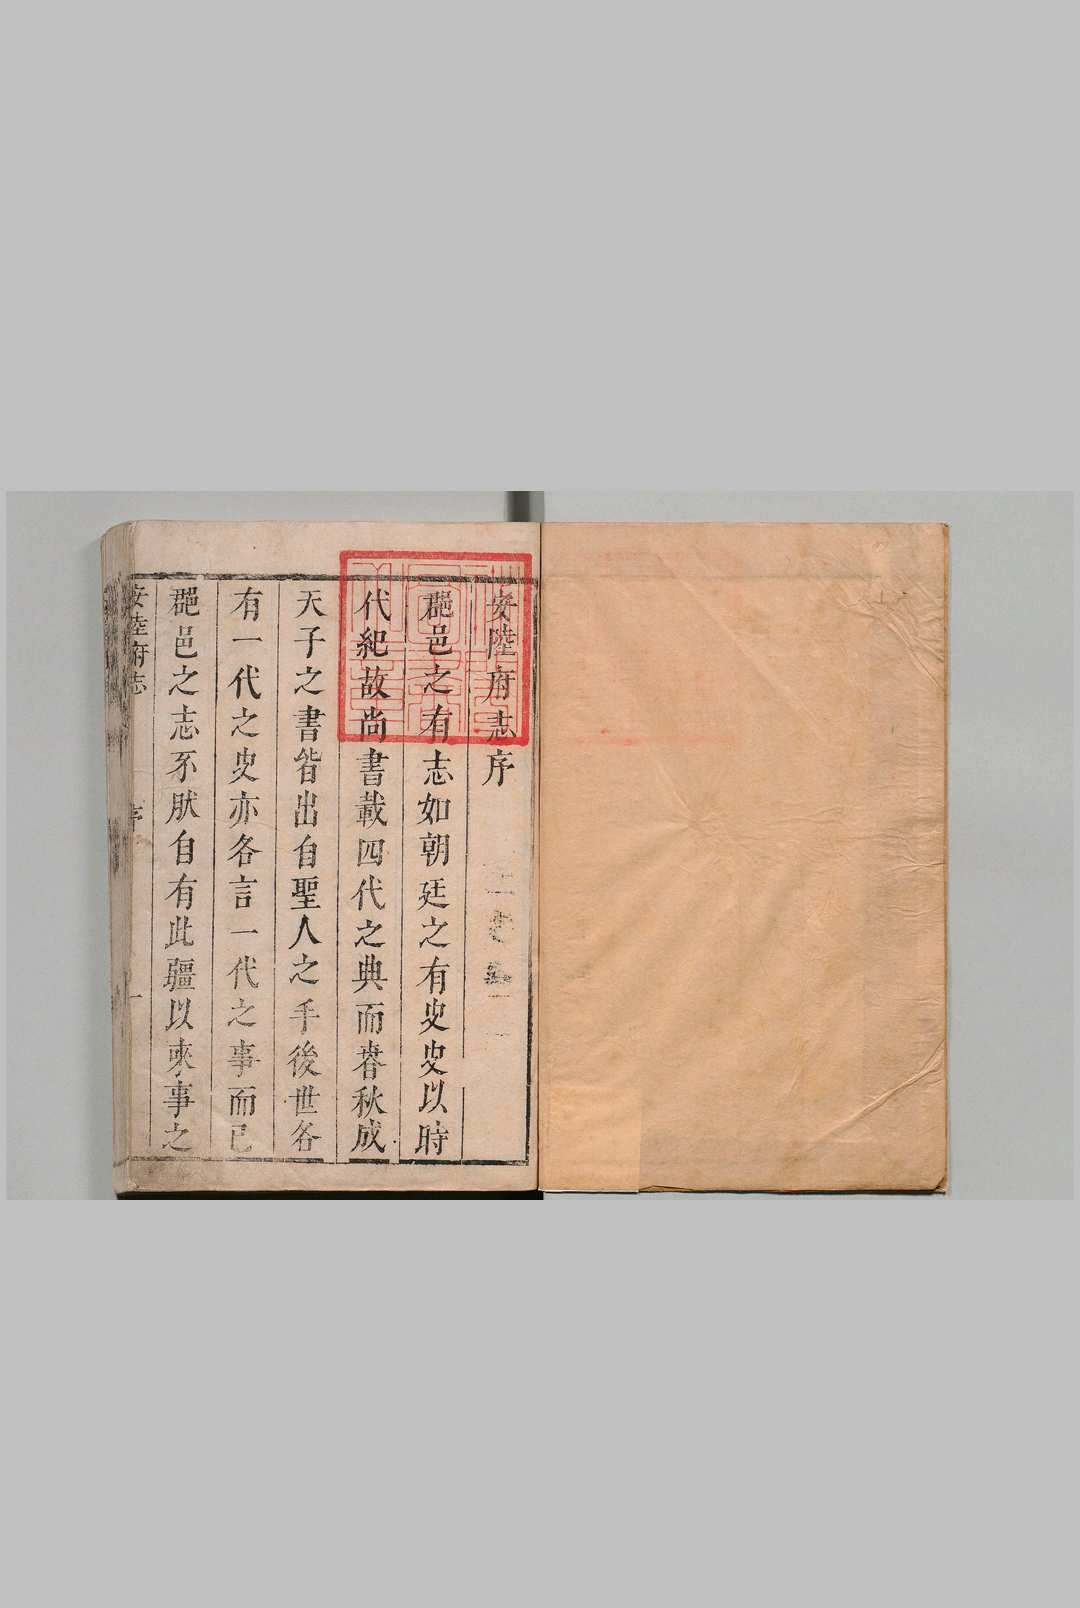 安陸府志序
郡邑之有志如朝廷之有史史以時
代紀故尚書載四代之典而春秋成
天子之書皆出自聖人之手後世各
有一代之史亦各言一代之事而已
郡邑之志不肰自有此疆以來事之
安陸府志 序 一